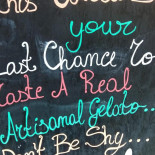 This
your
Last Chance To
Taste A Real
Artisanal Gelato...
Don't Be Shy...